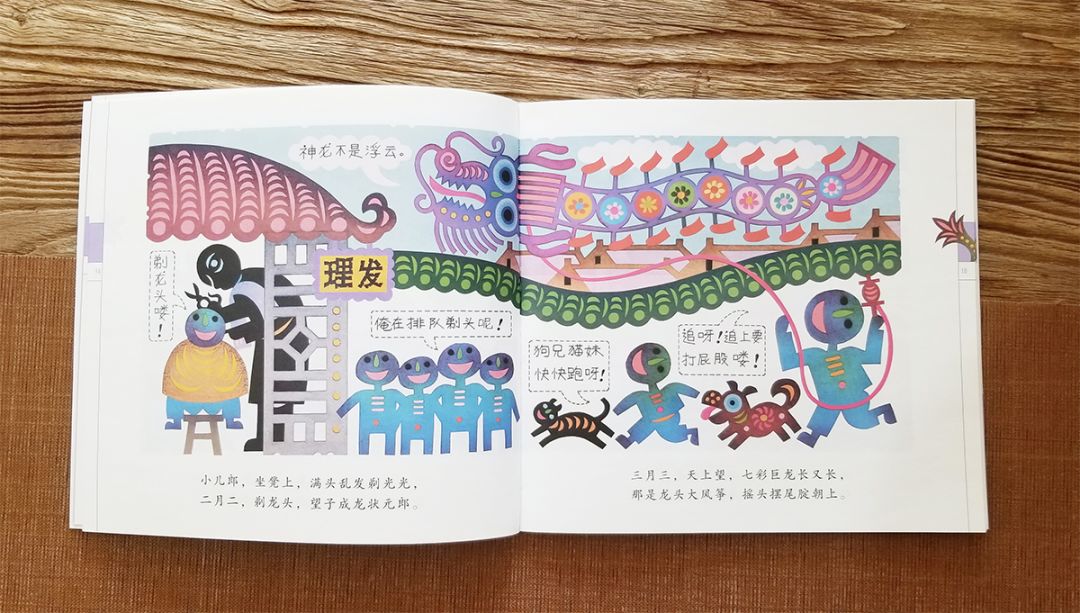 神龙不是浮云。
剃
龙
头
喽
！
理发
俺在排队剃头呢！
狗兄猫妹
快快跑呀！
追呀！追上要
打屁股喽！
小儿郎，坐凳上，满头乱发剃光光，
二月二，剃龙头，望子成龙状元郎。
三月三，天上望，七彩巨龙长又长，
那是龙头大风筝，摇头摆尾腚朝上。
14
18